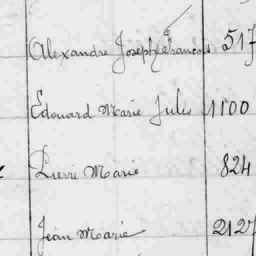 Alexandre Joseph François 517
Edouard Marie Jules 1100
Pierre Marie 824
Jean Marie 2127